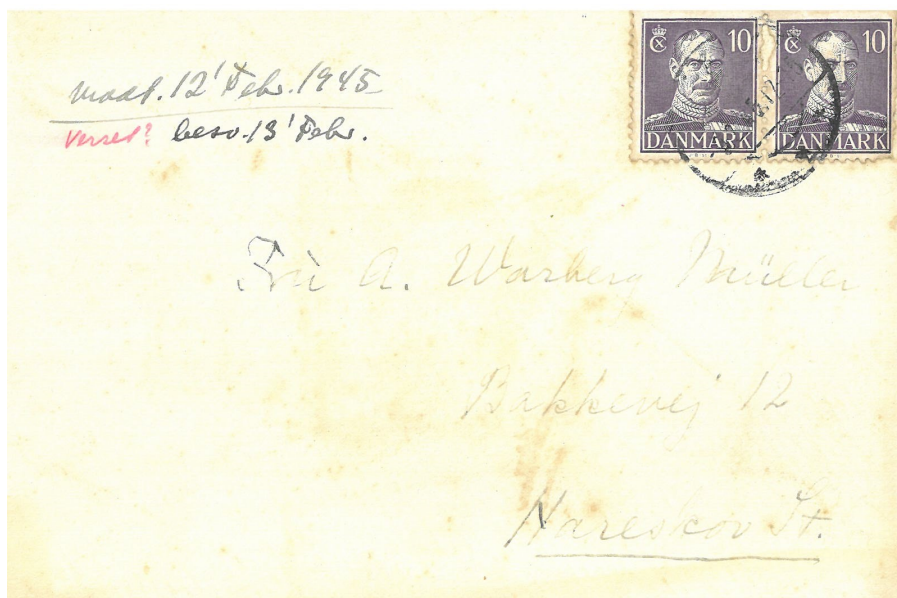 modt. 12' Febr. 1945
besv. 13' Febr.
10 10
DANMARK DANMARK
Fru A. Warberg Müller
Bakkevej 12
Hareskov St.